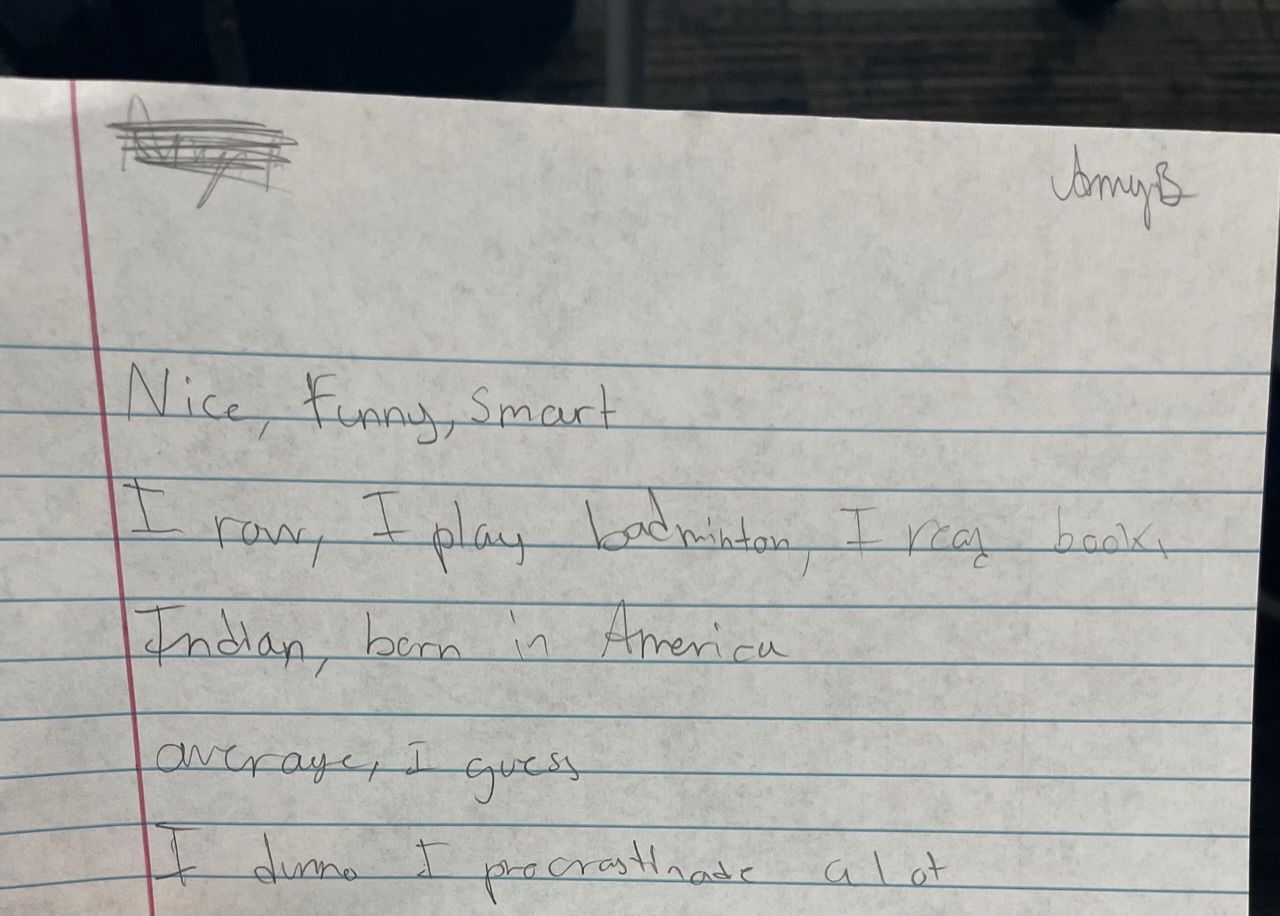 Amy B
Nice, Funny, Smart
I row, I play badminton, I read books
Indian, born in America
average, I guess
I dunno I procrastinate a lot